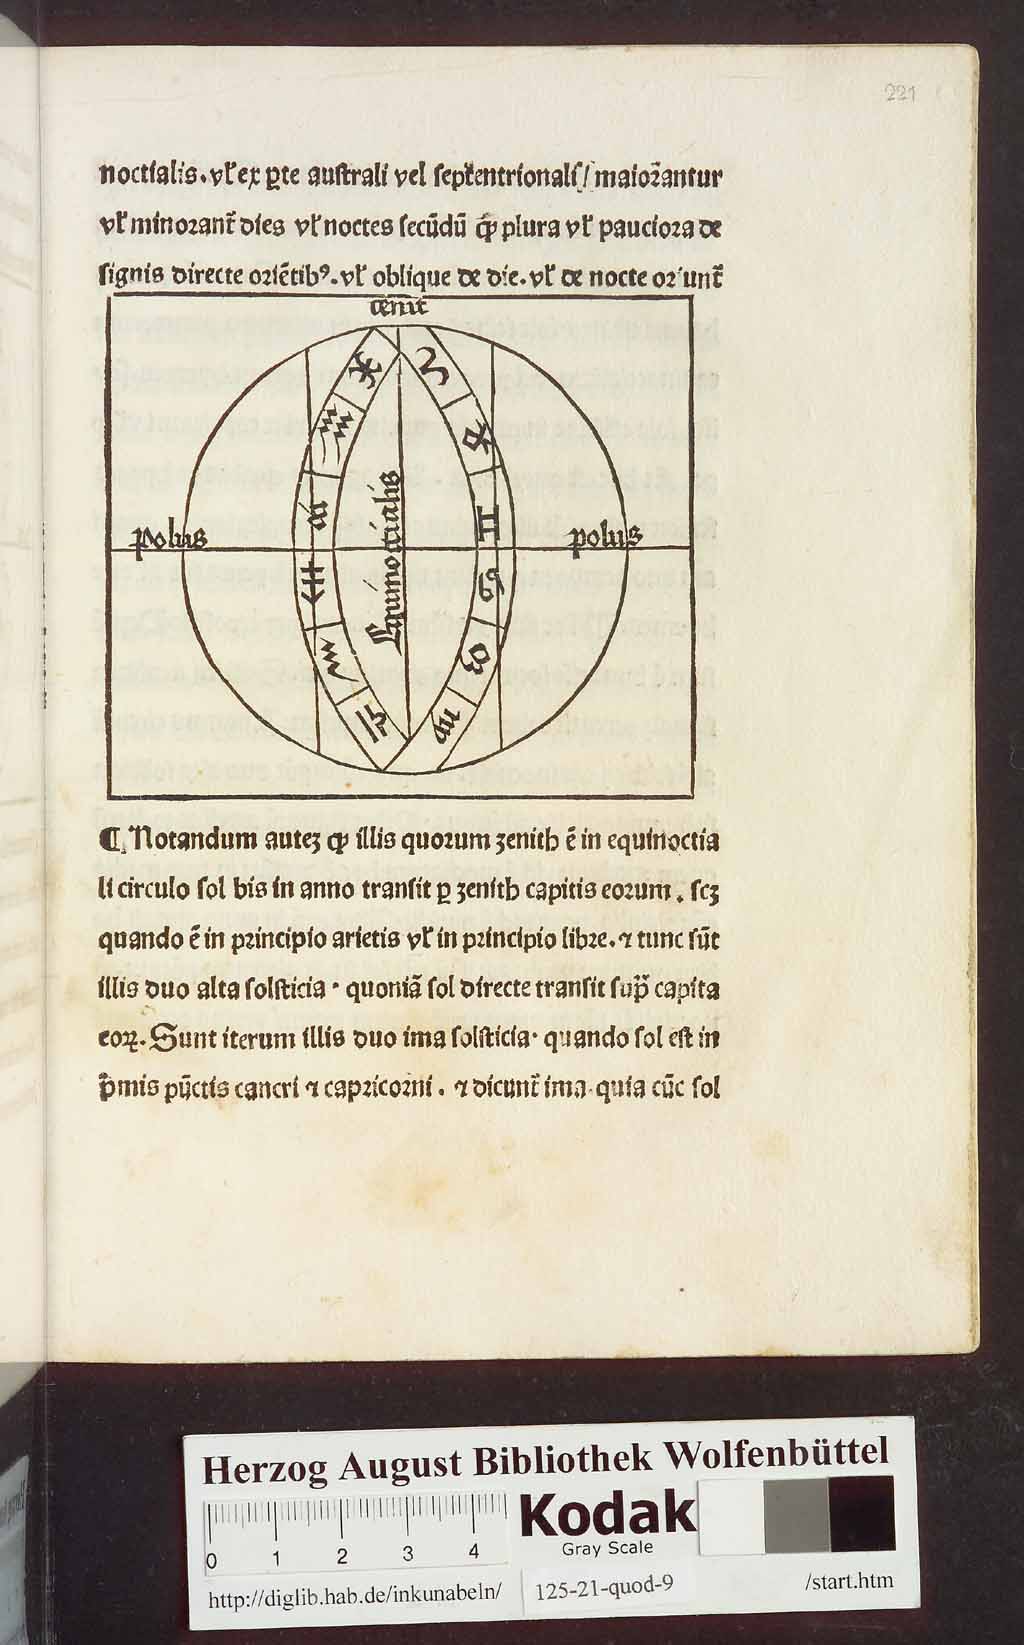 221
noctialis. vl̛ ex ꝑte auſtrali vel ſeptẽntrionali / maioꝛãntur
vl̛ minoꝛant᷑ dies vl̛ noctes ſecũdũ ꝙ̃ plura vl̛ paucioꝛa de
ſignis directe oꝛiẽtibꝰ. vl̛ oblique de die. vl̛ de nocte oꝛiunt᷑
cenit
polus
polus
Equinoctialis
¶ Notandum auteꝫ ꝙ illis quoꝛum ʒenith ẽ in equinoctia
li circulo ſol bis in anno tranſit ꝑ ʒenith capitis eoꝛum. ſcꝫ
quando ẽ in pꝛincipio arietis vl̛ in pꝛincipio libꝛe. ⁊ tunc ſũt
illis duo alta ſolſticia · quoniã ſol directe tranſit ſup̃ capita
eoꝝ. Sunt iterum illis duo ima ſolſticia· quando ſol eſt in
p̃mis pũctis cancri ⁊ capꝛicoꝛni. ⁊ dicunt᷑ ima· quia cũc ſol
Herzog August Bibliothek Wolfenbüttel
0 1 2 3 4
Kodak
Gray Scale
http://diglib.hab.de/inkunabeln/ 125-21-quod-9 /start.htm